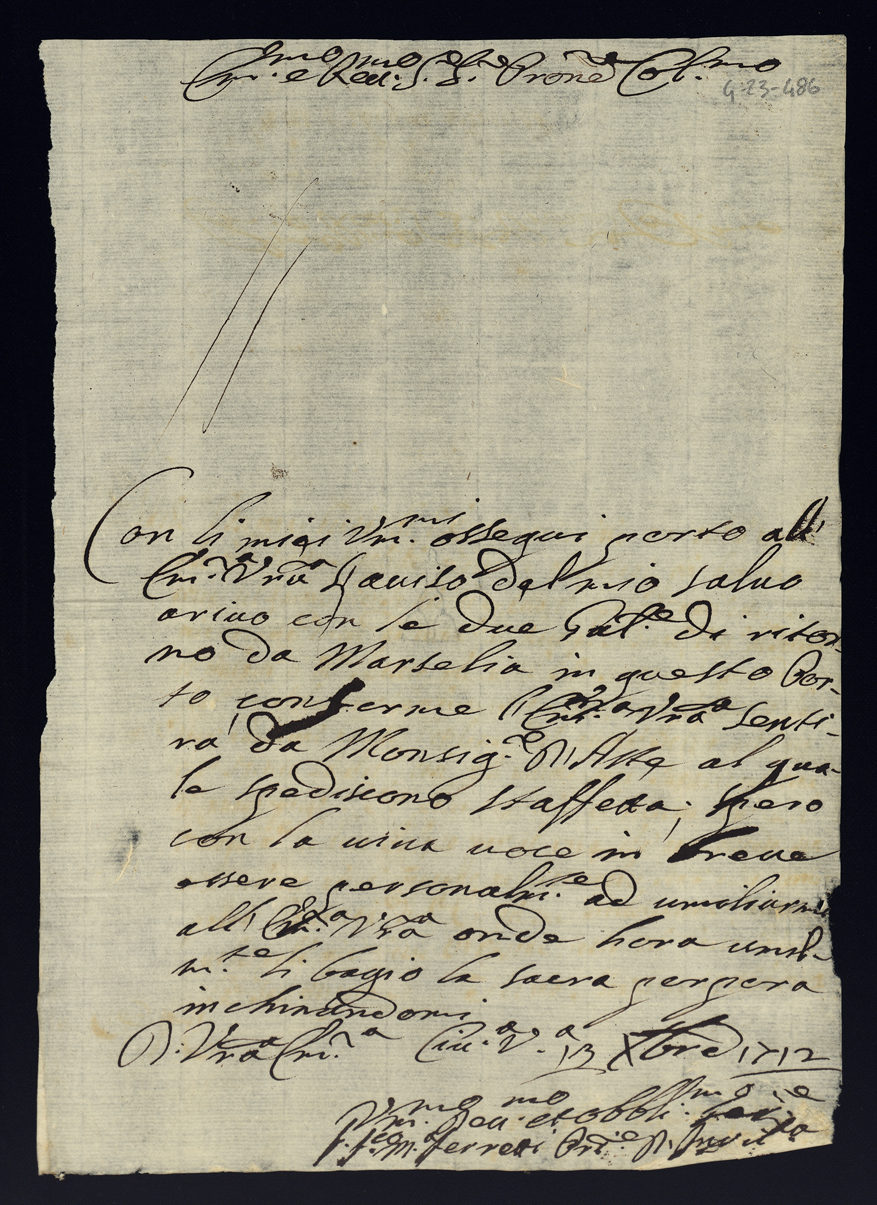 Em.mo e Reu.mo S.e S.e Prone Col.mo
4-23-486
Con li miei Vm.mi ossequi porto all'
Em.a Vra l'auiso del mio saluo
ariuo con le due Gal.e di ritor-
no da Marselia in questo Por-
to conforme l'Em.a Vra senti-
ra da Monsig.re D'Aste al qua-
le spediscono staffeta; spero
con la uiua uoce in breue
essere personalm.te ad umiliarmi
all'Em.a Vra onde hora umil-
m.te li bagio la sacra porpora
inchinandomi
D. Vra Em.a Ciu.a V.a 13 Xbre 1712
Vm.mo Deu.mo et obbli.mo
M. Ferreti